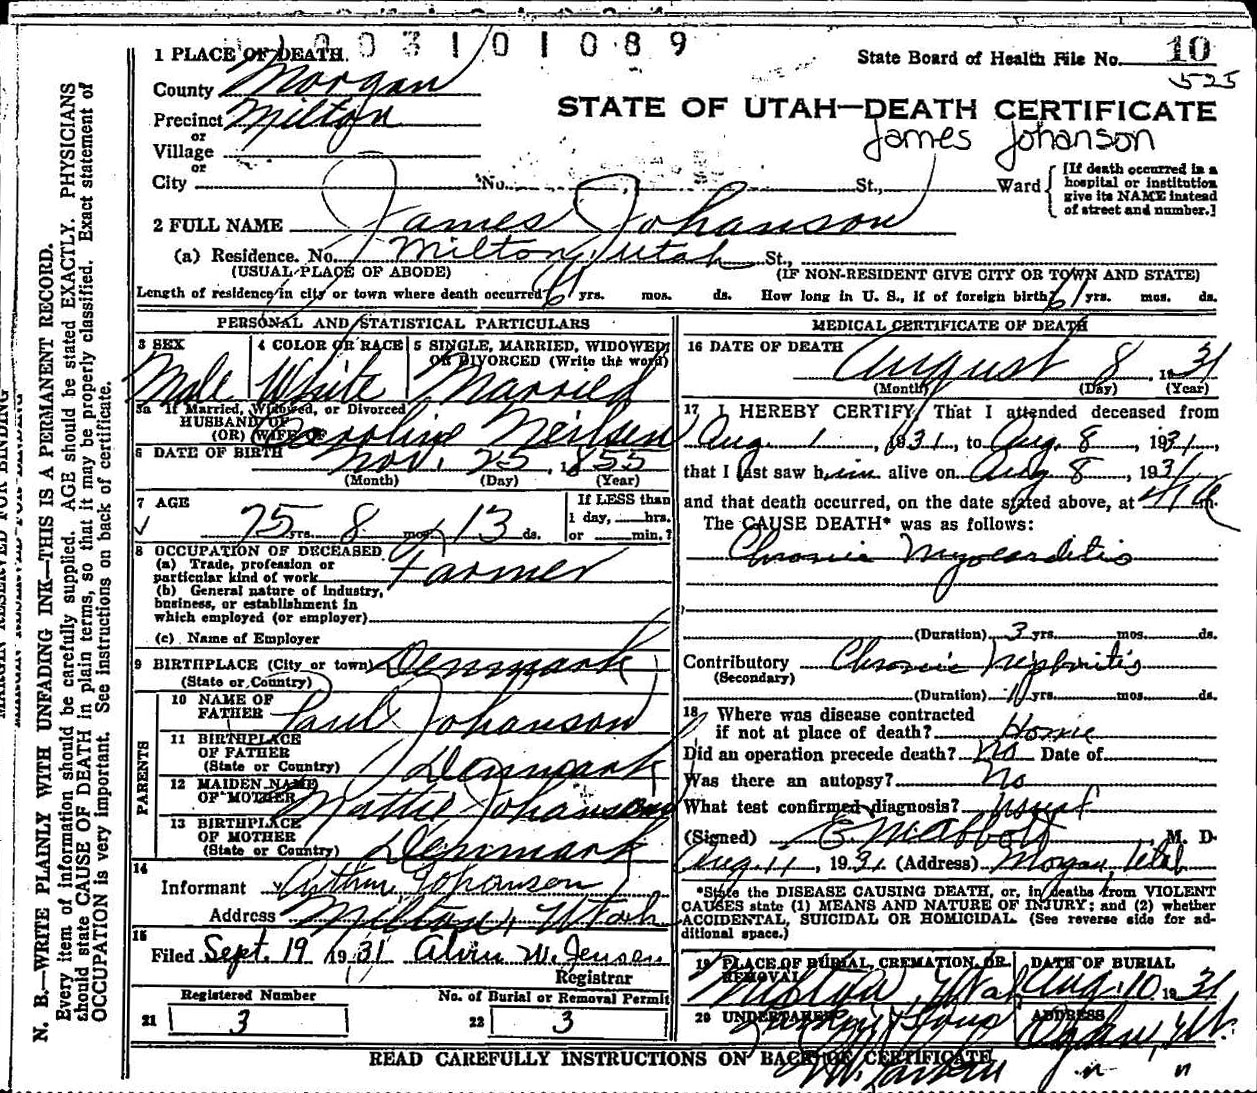 0 0 3 1 0 1 0 8 9
1 PLACE OF DEATH.
State Board of Health File No. 10
525
County Morgan
STATE OF UTAH—DEATH CERTIFICATE
Precinct Milton
James Johanson
or
Village
or
City No. St., Ward
[If death occurred in a hospital or institution give its NAME instead of street and number.]
2 FULL NAME James Johanson
(a) Residence. No. Milton, Utah St.,
(USUAL PLACE OF ABODE) (IF NON-RESIDENT GIVE CITY OR TOWN AND STATE)
Length of residence in city or town where death occurred 61 yrs. mos. ds. How long in U. S., if of foreign birth? 61 yrs. mos. ds.
PERSONAL AND STATISTICAL PARTICULARS
3 SEX 4 COLOR OR RACE 5 SINGLE, MARRIED, WIDOWED, OR DIVORCED (Write the word)
Male White Married
3a If Married, Widowed, or Divorced
HUSBAND OF
(OR) WIFE OF Caroline Neilsen
6 DATE OF BIRTH Nov. 25, 1855
(Month) (Day) (Year)
7 AGE 75 yrs. 8 mos. 13 ds.
If LESS than
1 day, hrs.
or min.?
8 OCCUPATION OF DECEASED
(a) Trade, profession or
particular kind of work Farmer
(b) General nature of industry,
business, or establishment in
which employed (or employer)
(c) Name of Employer
9 BIRTHPLACE (City or town) Denmark
(State or Country)
PARENTS
10 NAME OF
FATHER Paul Johanson
11 BIRTHPLACE
OF FATHER
(State or Country) Denmark
12 MAIDEN NAME
OF MOTHER Mattie Johanson
13 BIRTHPLACE
OF MOTHER
(State or Country) Denmark
14
Informant Arthur Johanson
Address Milton, Utah
15
Filed Sept. 19 1931 Alvin W. Jensen
Registrar
Registered Number No. of Burial or Removal Permit
21 3 22 3
MEDICAL CERTIFICATE OF DEATH
16 DATE OF DEATH August 8, 1931
(Month) (Day) (Year)
17 I HEREBY CERTIFY, That I attended deceased from
Aug. 1, 1931, to Aug. 8, 1931,
that I last saw him alive on Aug 8, 1931,
and that death occurred, on the date stated above, at 4 A m.
The CAUSE DEATH* was as follows:
Chronic Myocarditis
(Duration) 3 yrs. mos. ds.
Contributory Chronic Nephritis
(Secondary)
(Duration) yrs. mos. ds.
18 Where was disease contracted
if not at place of death? Home
Did an operation precede death? No Date of
Was there an autopsy? No
What test confirmed diagnosis? usual
(Signed) E M Abbott M. D.
Aug. 11, 1931 (Address) Morgan, Utah
*State the DISEASE CAUSING DEATH, or, in deaths from VIOLENT
CAUSES state (1) MEANS AND NATURE OF INJURY; and (2) whether
ACCIDENTAL, SUICIDAL OR HOMICIDAL. (See reverse side for ad-
ditional space.)
19 PLACE OF BURIAL, CREMATION, OR REMOVAL DATE OF BURIAL
Milton, Utah Aug. 10, 1931
20 UNDERTAKER ADDRESS
Ogden, Ut.
READ CAREFULLY INSTRUCTIONS ON BACK OF CERTIFICATE
MARGIN RESERVED FOR BINDING
N. B.—WRITE PLAINLY WITH UNFADING INK—THIS IS A PERMANENT RECORD.
Every item of information should be carefully supplied. AGE should be stated EXACTLY. PHYSICIANS
should state CAUSE OF DEATH in plain terms, so that it may be properly classified. Exact statement of
OCCUPATION is very important. See instructions on back of certificate.